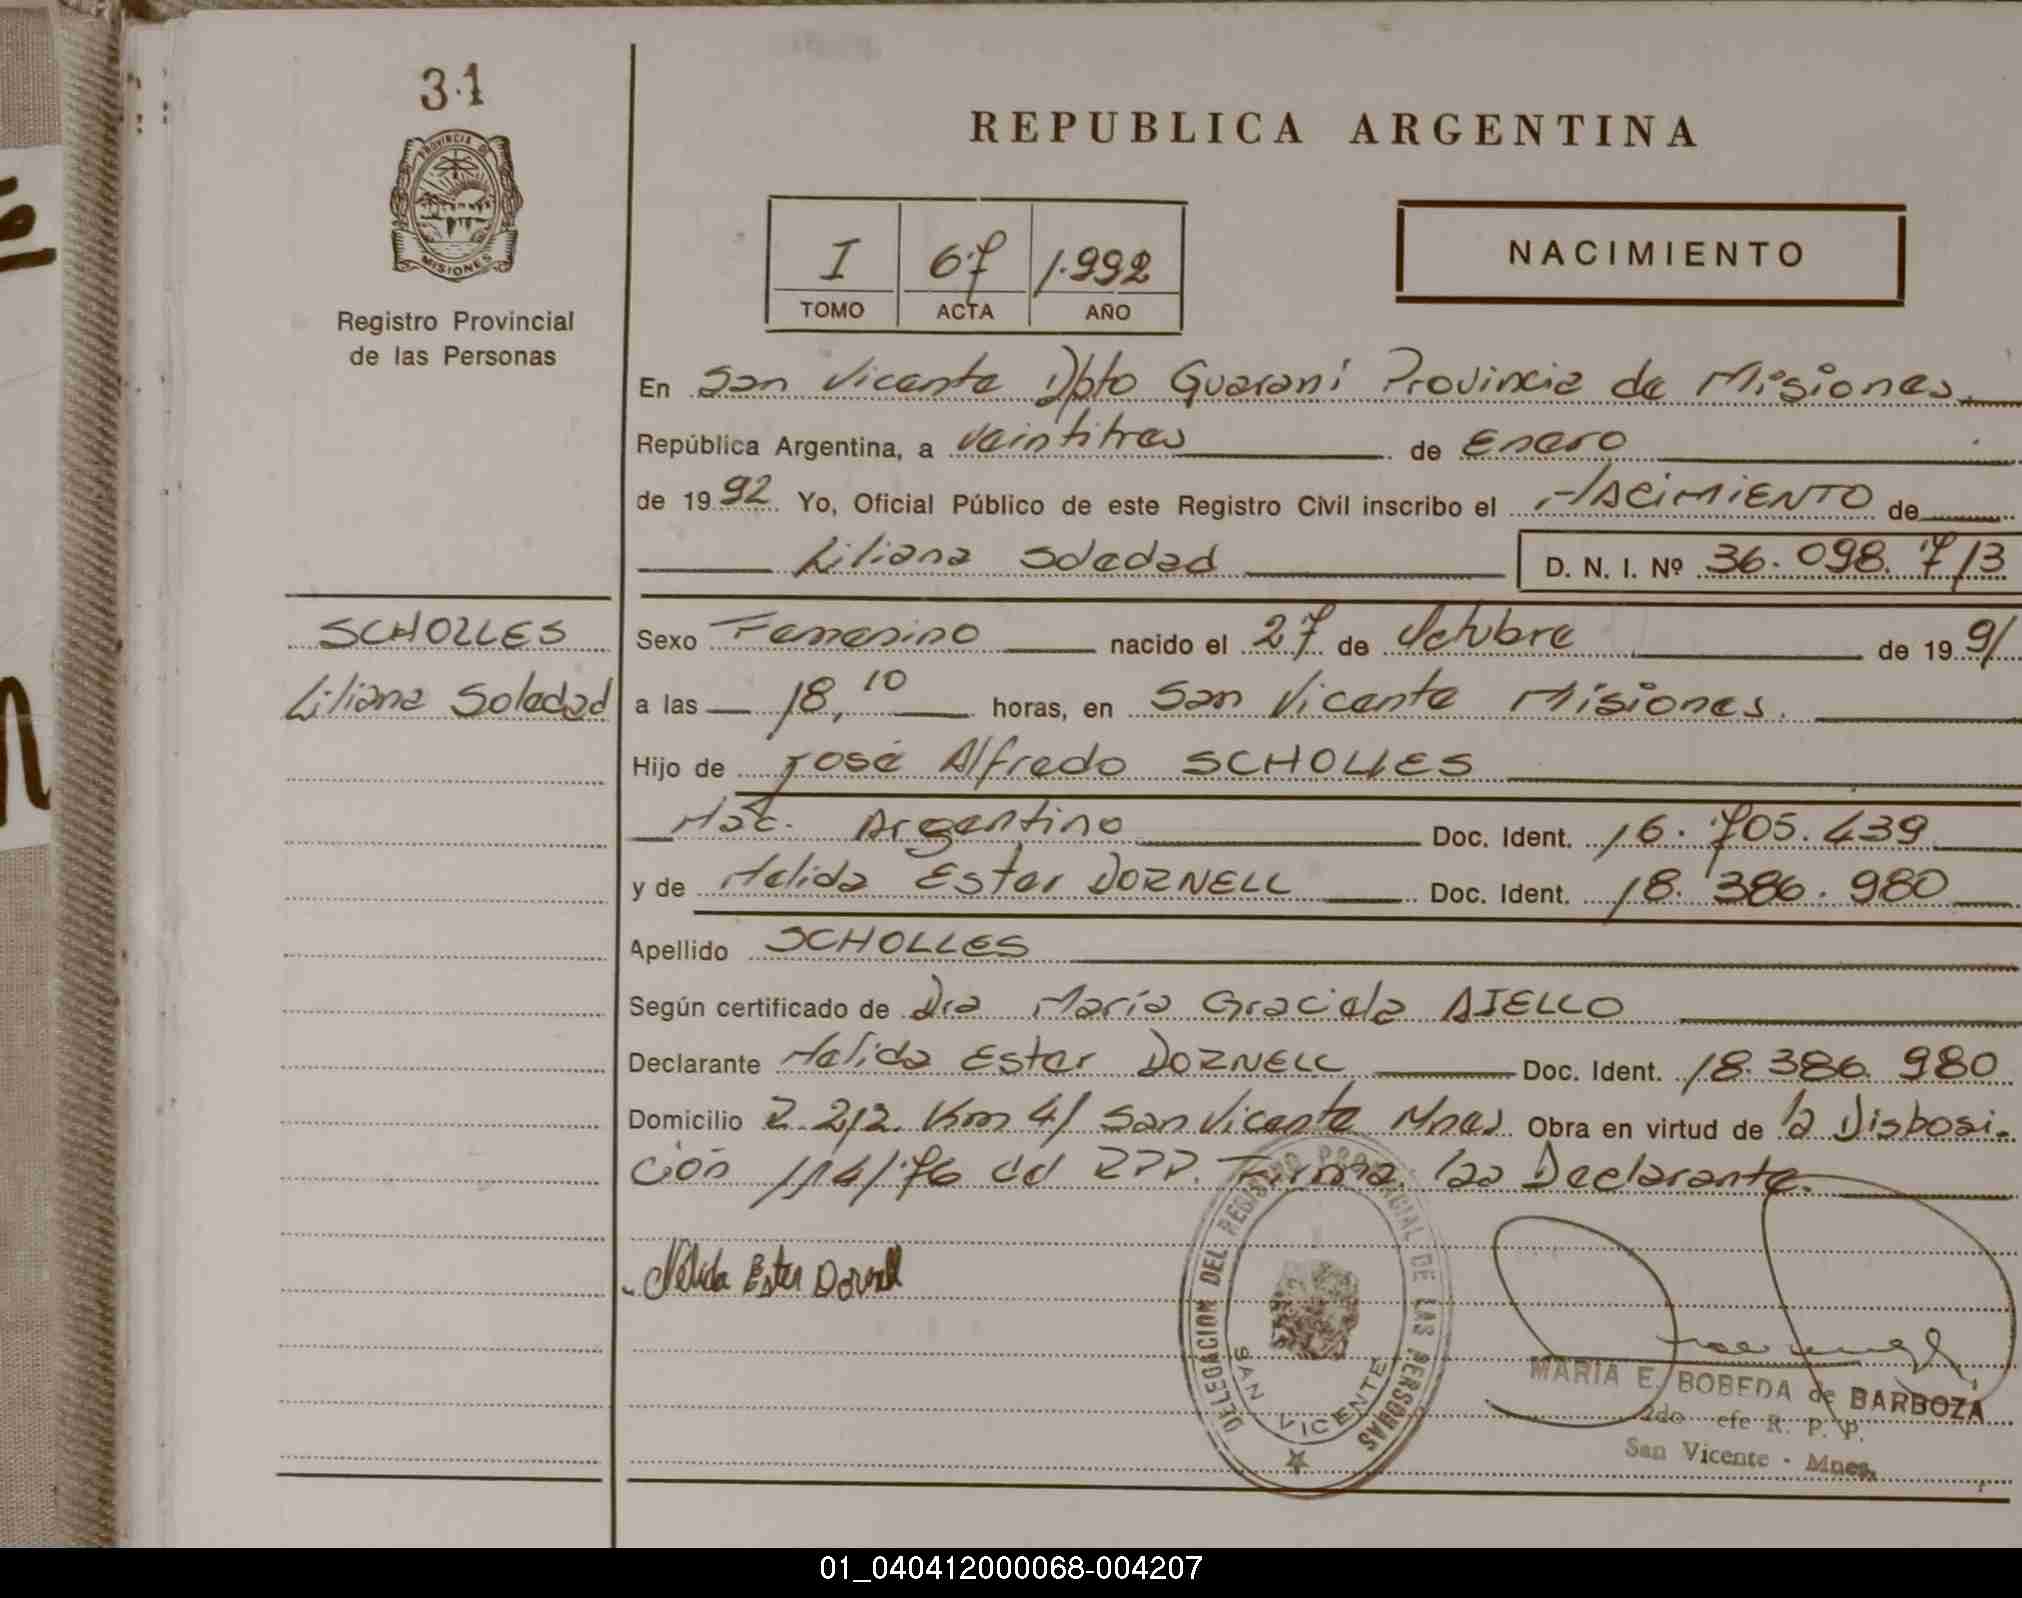 31
PROVINCIA DE
MISIONES
Registro Provincial
de las Personas
REPUBLICA ARGENTINA
I 67 1.992
TOMO ACTA AÑO
NACIMIENTO
En San Vicente Dpto Guaraní Provincia de Misiones.
República Argentina, a veintitres de Enero
de 1992 Yo, Oficial Público de este Registro Civil inscribo el NACIMIENTO de
Liliana Soledad D. N. I. Nº 36.098.713
SCHOLLES
Liliana Soledad
Sexo Femenino nacido el 27 de Octubre de 1991
a las 18,10 horas, en San Vicente Misiones.
Hijo de José Alfredo SCHOLLES
Nac. Argentino Doc. Ident. 16.705.439
y de Nelida Ester DORNELL Doc. Ident. 18.386.980
Apellido SCHOLLES
Según certificado de Dra María Graciela AIELLO
Declarante Nelida Ester DORNELL Doc. Ident. 18.386.980
Domicilio R. 212. Km 41 San Vicente Mnes Obra en virtud de la Disposi-
ción 114/76 del RPP. Firma la Declarante.
Nélida Ester Dornell
DELEGACION DEL REGISTRO PROVINCIAL DE LAS PERSONAS
SAN VICENTE
MARIA E. BOBEDA de BARBOZA
2do efe R. P. P.
San Vicente - Mnes.
01_040412000068-004207